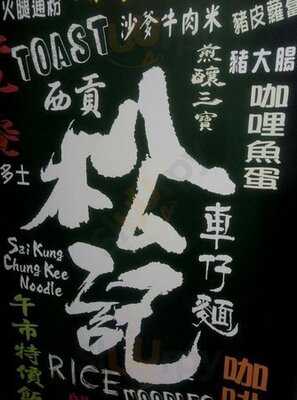 火腿通粉
TOAST
沙爹牛肉米
豬皮蘿蔔
煎釀三寶
豬大腸
咖哩魚蛋
西貢
松記
車仔麵
多士
餐
Sai Kung
Chung Kee
Noodle
午市特價飯
RICE
NOODLES
咖啡